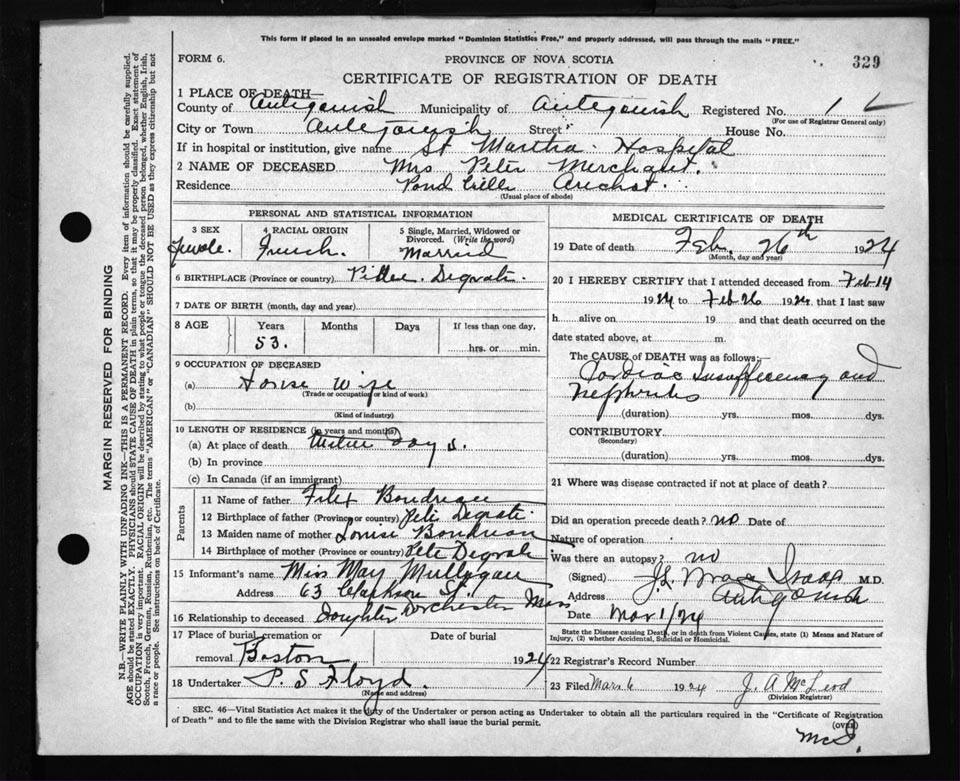 This form if placed in an unsealed envelope marked "Dominion Statistics Free," and properly addressed, will pass through the mails "FREE."
FORM 6. PROVINCE OF NOVA SCOTIA 329
CERTIFICATE OF REGISTRATION OF DEATH
1 PLACE OF DEATH—
County of Antigonish Municipality of Antigonish Registered No. 1
(For use of Registrar General only)
City or Town Antigonish Street House No.
If in hospital or institution, give name St Martha Hospital
2 NAME OF DECEASED Mrs Peter Merchant.
Residence Pond Arichat.
(Usual place of abode)
PERSONAL AND STATISTICAL INFORMATION
3 SEX 4 RACIAL ORIGIN 5 Single, Married, Widowed or Divorced. (Write the word)
Female. French. Married
6 BIRTHPLACE (Province or country) Degrat.
7 DATE OF BIRTH (month, day and year)
8 AGE Years Months Days If less than one day,
53. hrs. or min.
9 OCCUPATION OF DECEASED
(a) House Wife
(Trade or occupation or kind of work)
(b)
(Kind of industry)
10 LENGTH OF RESIDENCE (in years and months)
(a) At place of death days.
(b) In province
(c) In Canada (if an immigrant)
Parents
11 Name of father Boudreau
12 Birthplace of father (Province or country) Pete Degrat.
13 Maiden name of mother Louise Boudreau
14 Birthplace of mother (Province or country) Pete Degrat
15 Informant's name Miss May Mullygan
Address 63 Clarkson St. Dorchester Mass
16 Relationship to deceased Doughter
17 Place of burial, cremation or removal Boston Date of burial 1924
18 Undertaker P. S Floyd.
(Name and address)
MEDICAL CERTIFICATE OF DEATH
19 Date of death Feb. 26th 1924
(Month, day and year)
20 I HEREBY CERTIFY that I attended deceased from Feb 14
1924 to Feb 26 1924, that I last saw
h alive on 19 and that death occurred on
date stated above, at m.
The CAUSE of DEATH was as follows:
Cardiac Insufficency and
Nephritis
(duration) yrs. mos. dys.
CONTRIBUTORY
(Secondary)
(duration) yrs. mos. dys.
21 Where was disease contracted if not at place of death?
Did an operation precede death? no Date of
Nature of operation
Was there an autopsy? no
(Signed) J. M.D.
Address Antigonish
Date Mar 1/24
State the Disease causing Death, or in death from Violent Causes, state (1) Means and Nature of Injury, (2) whether Accidental, Suicidal or Homicidal.
22 Registrar's Record Number
23 Filed Mar 6 1924 J. A McLeod
(Division Registrar)
SEC. 46—Vital Statistics Act makes it the duty of the Undertaker or person acting as Undertaker to obtain all the particulars required in the "Certificate of Registration
of Death" and to file the same with the Division Registrar who shall issue the burial permit.
(over)
MARGIN RESERVED FOR BINDING
N.B.—WRITE PLAINLY WITH UNFADING INK—THIS IS A PERMANENT RECORD. Every item of information should be carefully supplied.
AGE should be stated EXACTLY. PHYSICIANS should STATE CAUSE OF DEATH in plain terms, so that it may be properly classified. Exact statement of
OCCUPATION is very important. RACIAL ORIGIN will be described by stating to what people or tongue the deceased person belonged, whether English, Irish,
Scotch, French, German, Russian, Ruthenian, etc. The terms "AMERICAN" or "CANADIAN" SHOULD NOT BE USED as they express citizenship but not
a race or people. See instructions on back of Certificate.